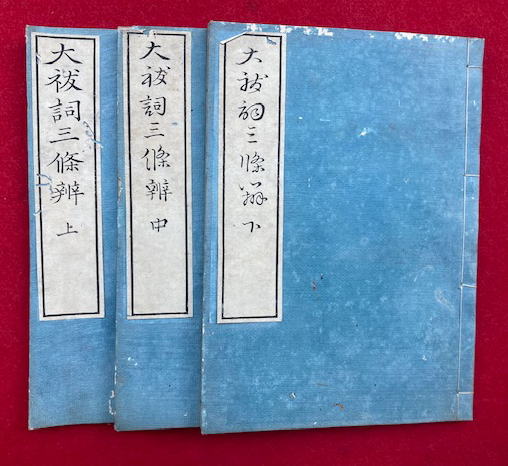 大祓詞三條辨 上
大祓詞三條辨 中
大祓詞三條辨 下